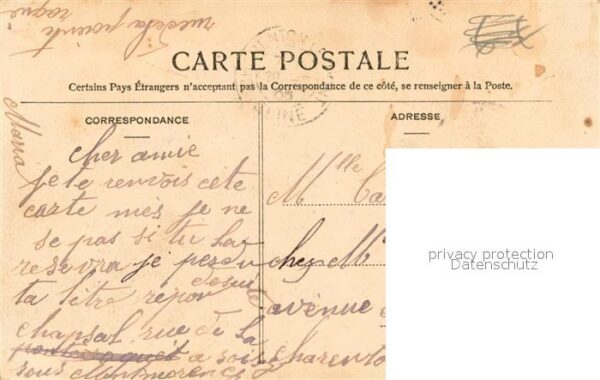 rue de la pointe
raquet
CARTE POSTALE
Certains Pays Étrangers n'acceptent pas la Correspondance de ce côté, se renseigner à la Poste.
CORRESPONDANCE
Maria
cher amie
je te renvois cete
carte mès je ne
se pas si tu la
resevra je perdu
ta lètre repon
desuite
chapsal rue de la
a soisi
sous Montmorency
ADRESSE
Mlle Ca
chez M
avenue
charento
privacy protection
Datenschutz